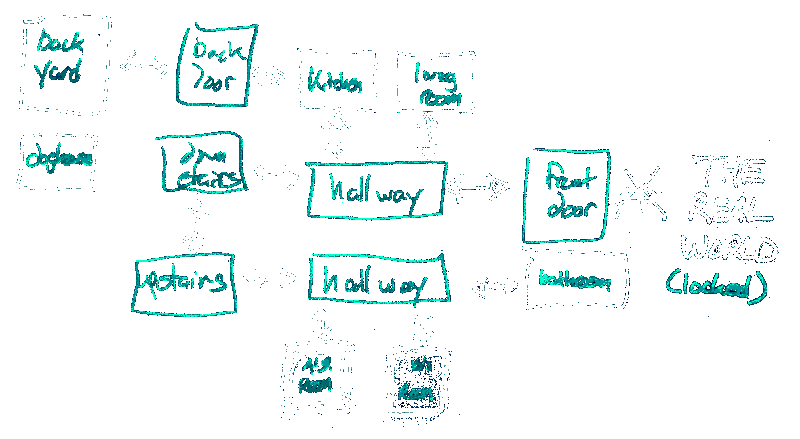 back
yard
back
door
kitchen
living
room
doghouse
down
stairs
hallway
front
door
THE
REAL
WORLD
(locked)
upstairs
hallway
bathroom
Room
Room